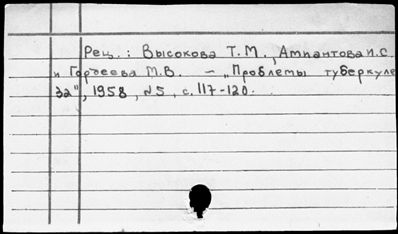 Рец.: Высокова Т.М., Амплантова И.С.
и Гордеева М.В. – „Проблемы туберкуле
за", 1958, №5, с. 117-120.